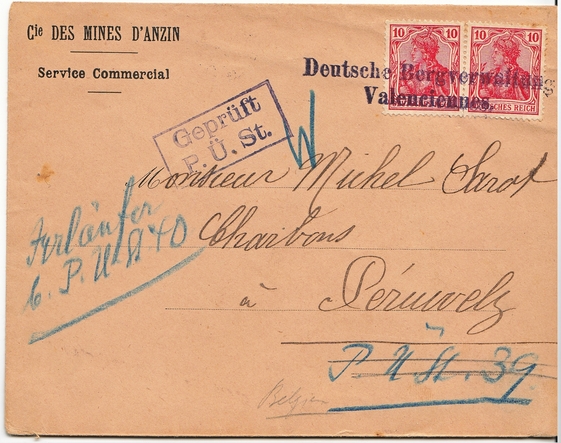 Cie DES MINES D'ANZIN
Service Commercial
10 10 10 10
Deutsche Bergverwaltung
Valenciennes.
DEUTSCHES REICH
Geprüft
P. Ü. St.
Monsieur Michel Sarot
Charbons
à Péruwelz
P. Ü St. 40
P Ü St. 39